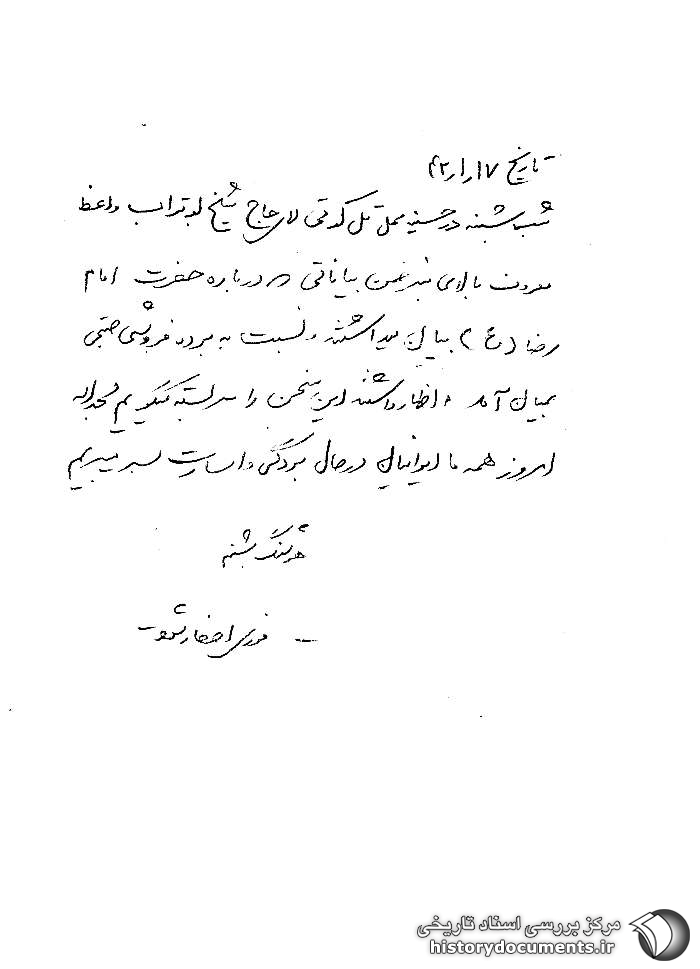 تاریخ ۱۷/۱/۴۲
شب شنبه در حسینیه محل کل کوتی لار حاج شیخ ابوتراب واعظ
معروف بالای منبر ضمن بیاناتی در درباره حضرت امام
رضا (ع) بیان میداشتند و نسبت به برده فروشی
بمیان آمد و اظهار داشتند این سخن را سربسته میگویم
امروز همه ما ایرانیان در حال بردگی و اسارت بسر میبریم
هوشنگ
فوری احضار شود
مرکز بررسی اسناد تاریخی
historydocuments.ir